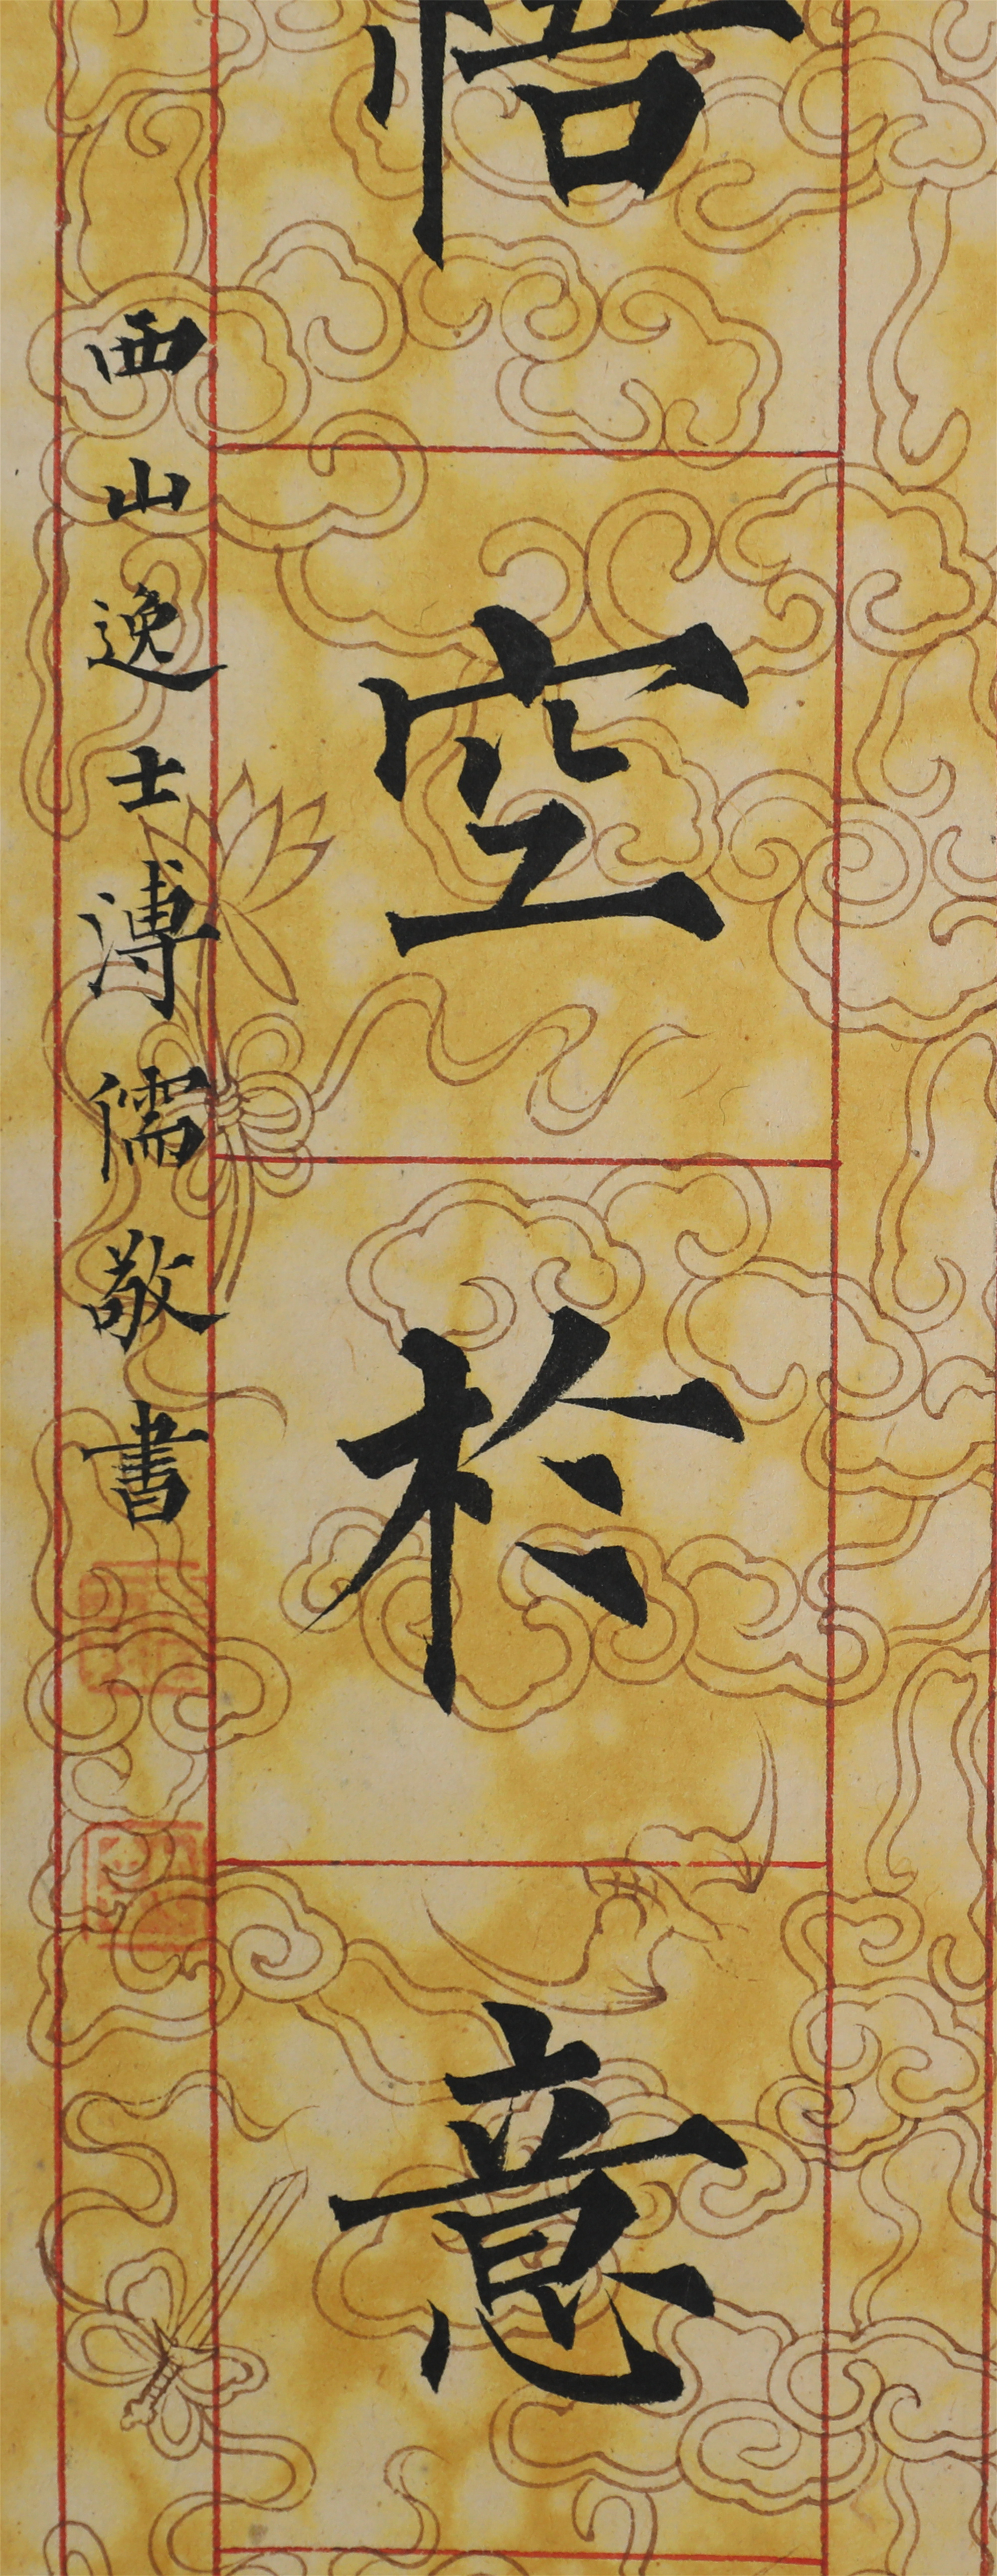 悟空於意
西山逸士溥儒敬書